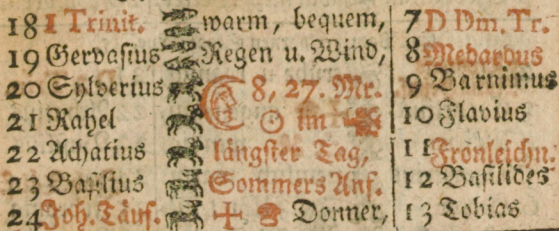 18 1 Trinit. warm, bequem, 7 D Dm. Tr.
19 Gervasius Regen u. Wind, 8 Medardus
20 Sylverius 8, 27. Mr. 9 Barnimus
21 Rahel im 10 Flavius
22 Achatius längster Tag, 11 Fronleichn.
23 Basilius Sommers Anf. 12 Basilides
24 Joh. Täuf. Donner, 13 Tobias